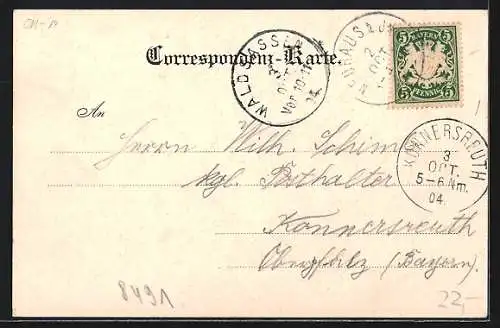 CH-P
Correspondenz-Karte.
WALDSASSEN
Vor. 10-11
04
NEUHAUS
2
OCT
BAYERN
5 5
5 5
PFENNIG
KONNERSREUTH
3
OCT.
5-6 Nm.
04.
An
Herrn Wilh. Schim
kgl. Posthalter
Konnersreuth
Oberpfalz (Bayern)
8491
22,-